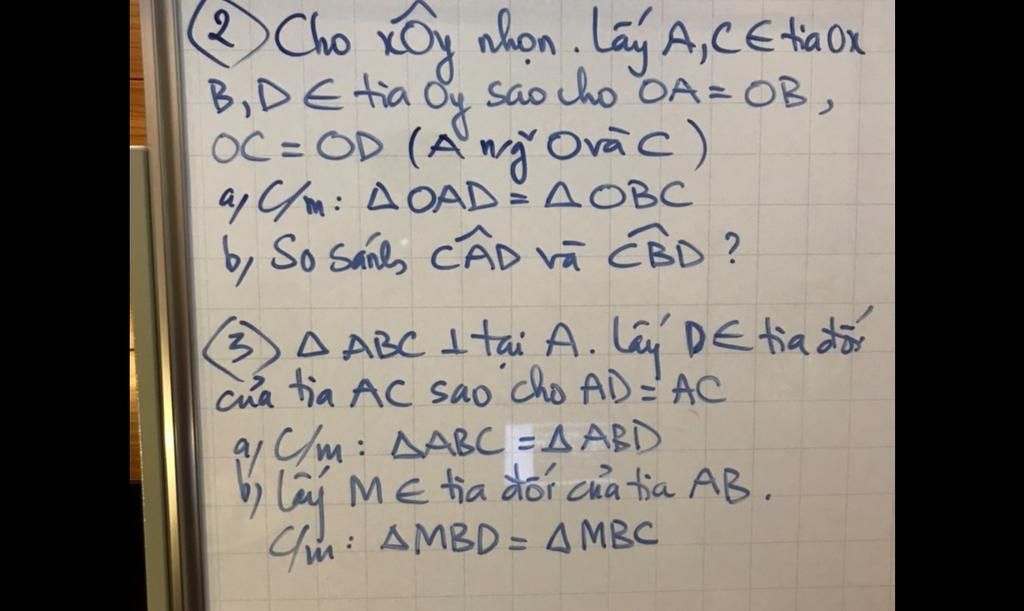 ② Cho xÔy nhọn. Lấy A, C ∈ tia Ox
B, D ∈ tia Oy sao cho OA = OB,
OC = OD (A n/g O và C)
a, C/m: △OAD = △OBC
b, So sánh CÂD và CB̂D ?
③ △ ABC ⊥ tại A. Lấy D ∈ tia đối
của tia AC sao cho AD = AC
a, C/m: △ABC = △ABD
b, Lấy M ∈ tia đối của tia AB.
C/m: △MBD = △MBC